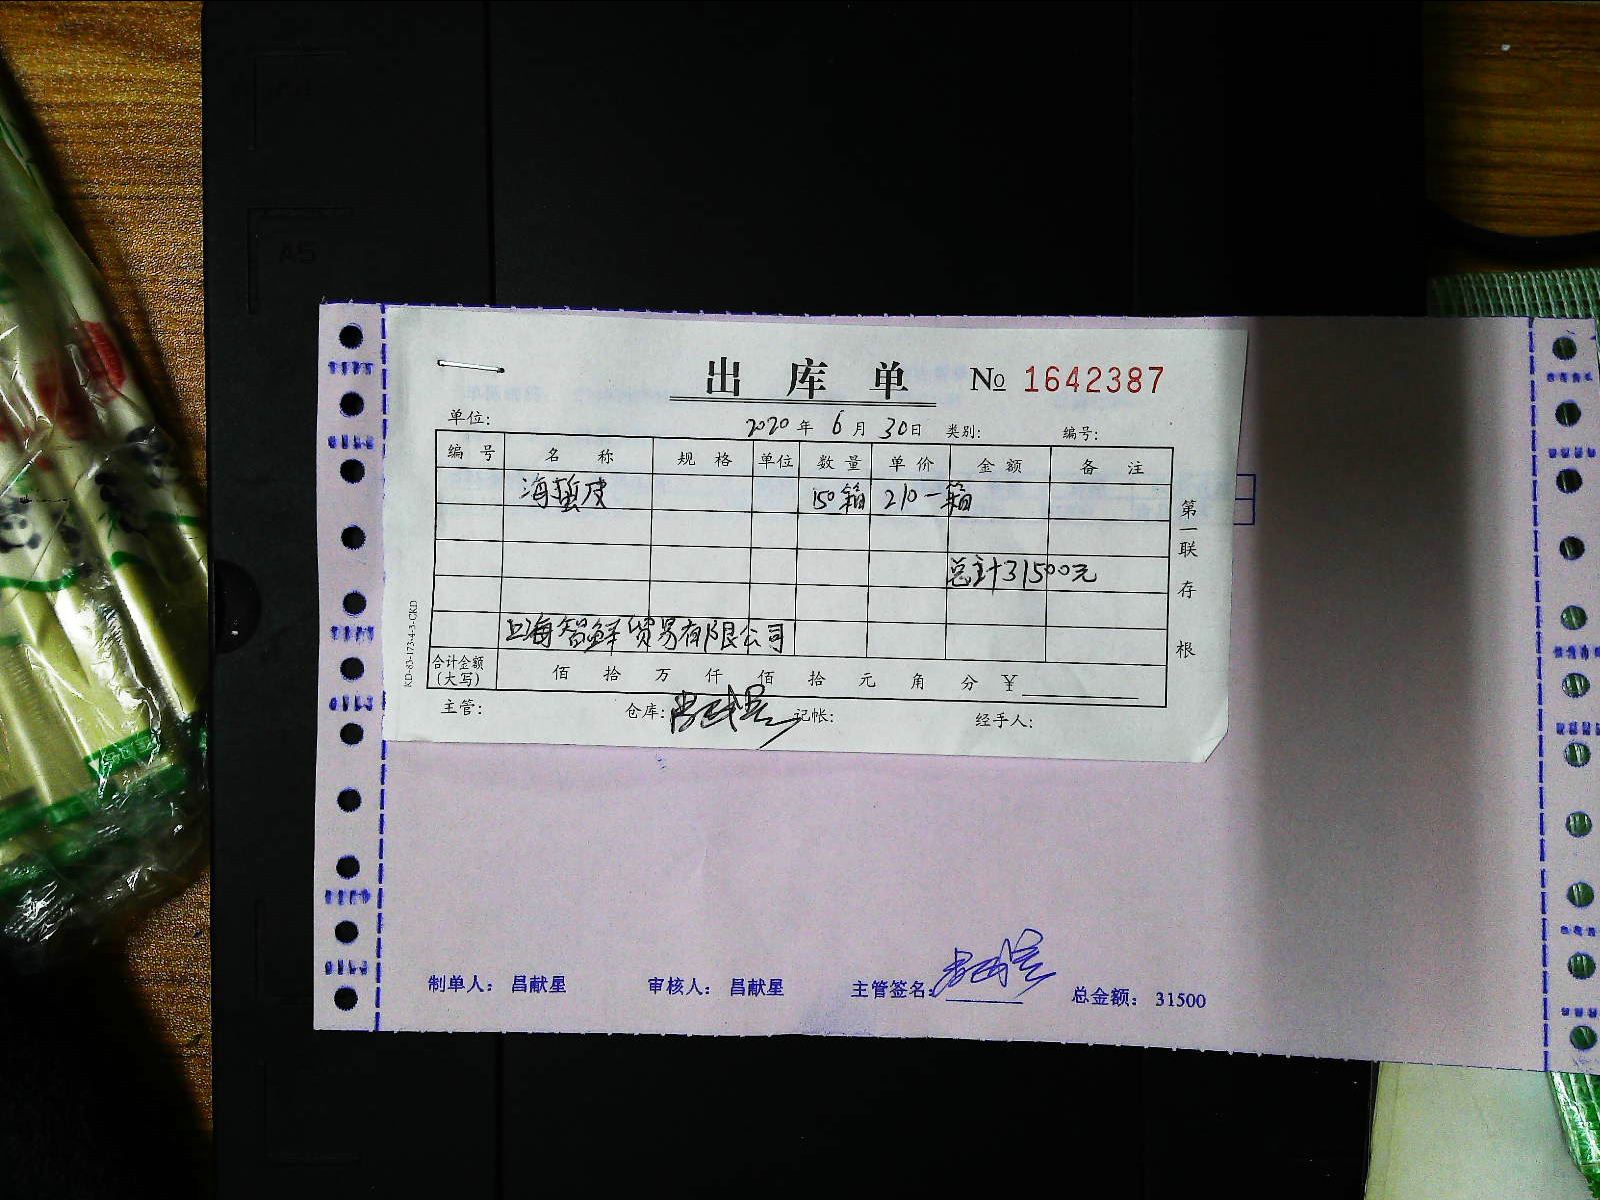 A5
出库单 № 1642387
单位: 2020年6月30日 类别: 编号:
编号 名称 规格 单位 数量 单价 金额 备注
海蜇皮 150箱 210一箱
总计31500元
上海智鲜贸易有限公司
合计金额(大写) 佰 拾 万 仟 佰 拾 元 角 分 ¥
主管: 仓库:昌献星 记帐: 经手人:
第一联 存根
KD-63-173-4-3-CKD
制单人: 昌献星 审核人: 昌献星 主管签名:昌献星 总金额: 31500